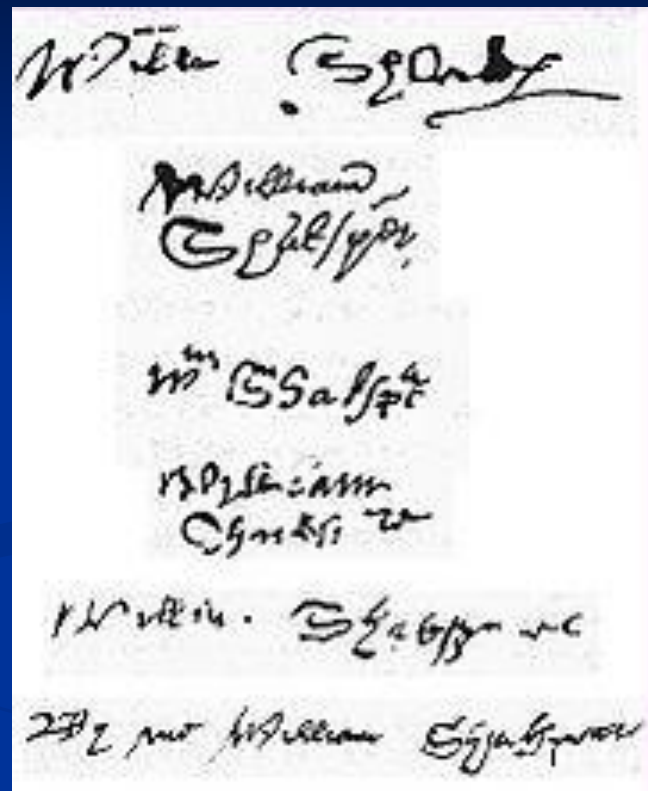 Willm Shakp
William
Shaksper
Wm Shakspe
William
Willm Shakspere
By me William Shakspeare